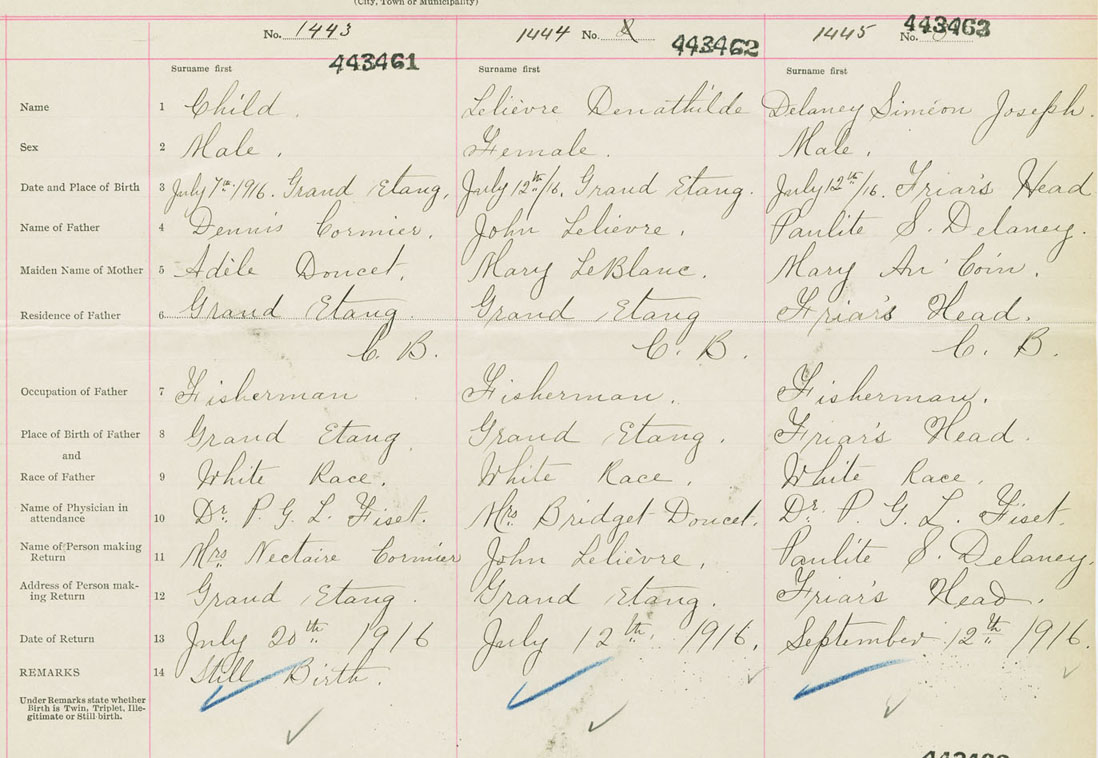 (City, Town or Municipality)
No. 1443
1444 No.
1445 No.
443461
443462
443463
Surname first
Surname first
Surname first
Name 1 Child. Lelièvre Denathilde Delaney Siméon Joseph.
Sex 2 Male. Female. Male.
Date and Place of Birth 3 July 7th 1916. Grand Etang. July 12th/16. Grand Etang. July 12th/16. Friar's Head
Name of Father 4 Dennis Cormier. John Lelièvre. Paulite S. Delaney.
Maiden Name of Mother 5 Adèle Doucet. Mary LeBlanc. Mary An' Coin.
Residence of Father 6 Grand Etang. Grand Etang Friar's Head.
C. B. C. B. C. B.
Occupation of Father 7 Fisherman Fisherman. Fisherman.
Place of Birth of Father 8 Grand Etang. Grand Etang. Friar's Head.
and
Race of Father 9 White Race. White Race. White Race.
Name of Physician in
attendance 10 Dr. P. G. L. Fiset. Mrs. Bridget Doucet. Dr. P. G. L. Fiset.
Name of Person making
Return 11 Mrs. Nectaire Cormier John Lelièvre. Paulite S. Delaney.
Address of Person mak-
ing Return 12 Grand Etang. Grand Etang. Friar's Head.
Date of Return 13 July 20th 1916 July 12th. 1916. September 12th 1916.
REMARKS 14 Still Birth.
Under Remarks state whether
Birth is Twin, Triplet, Ille-
gitimate or Still-birth.